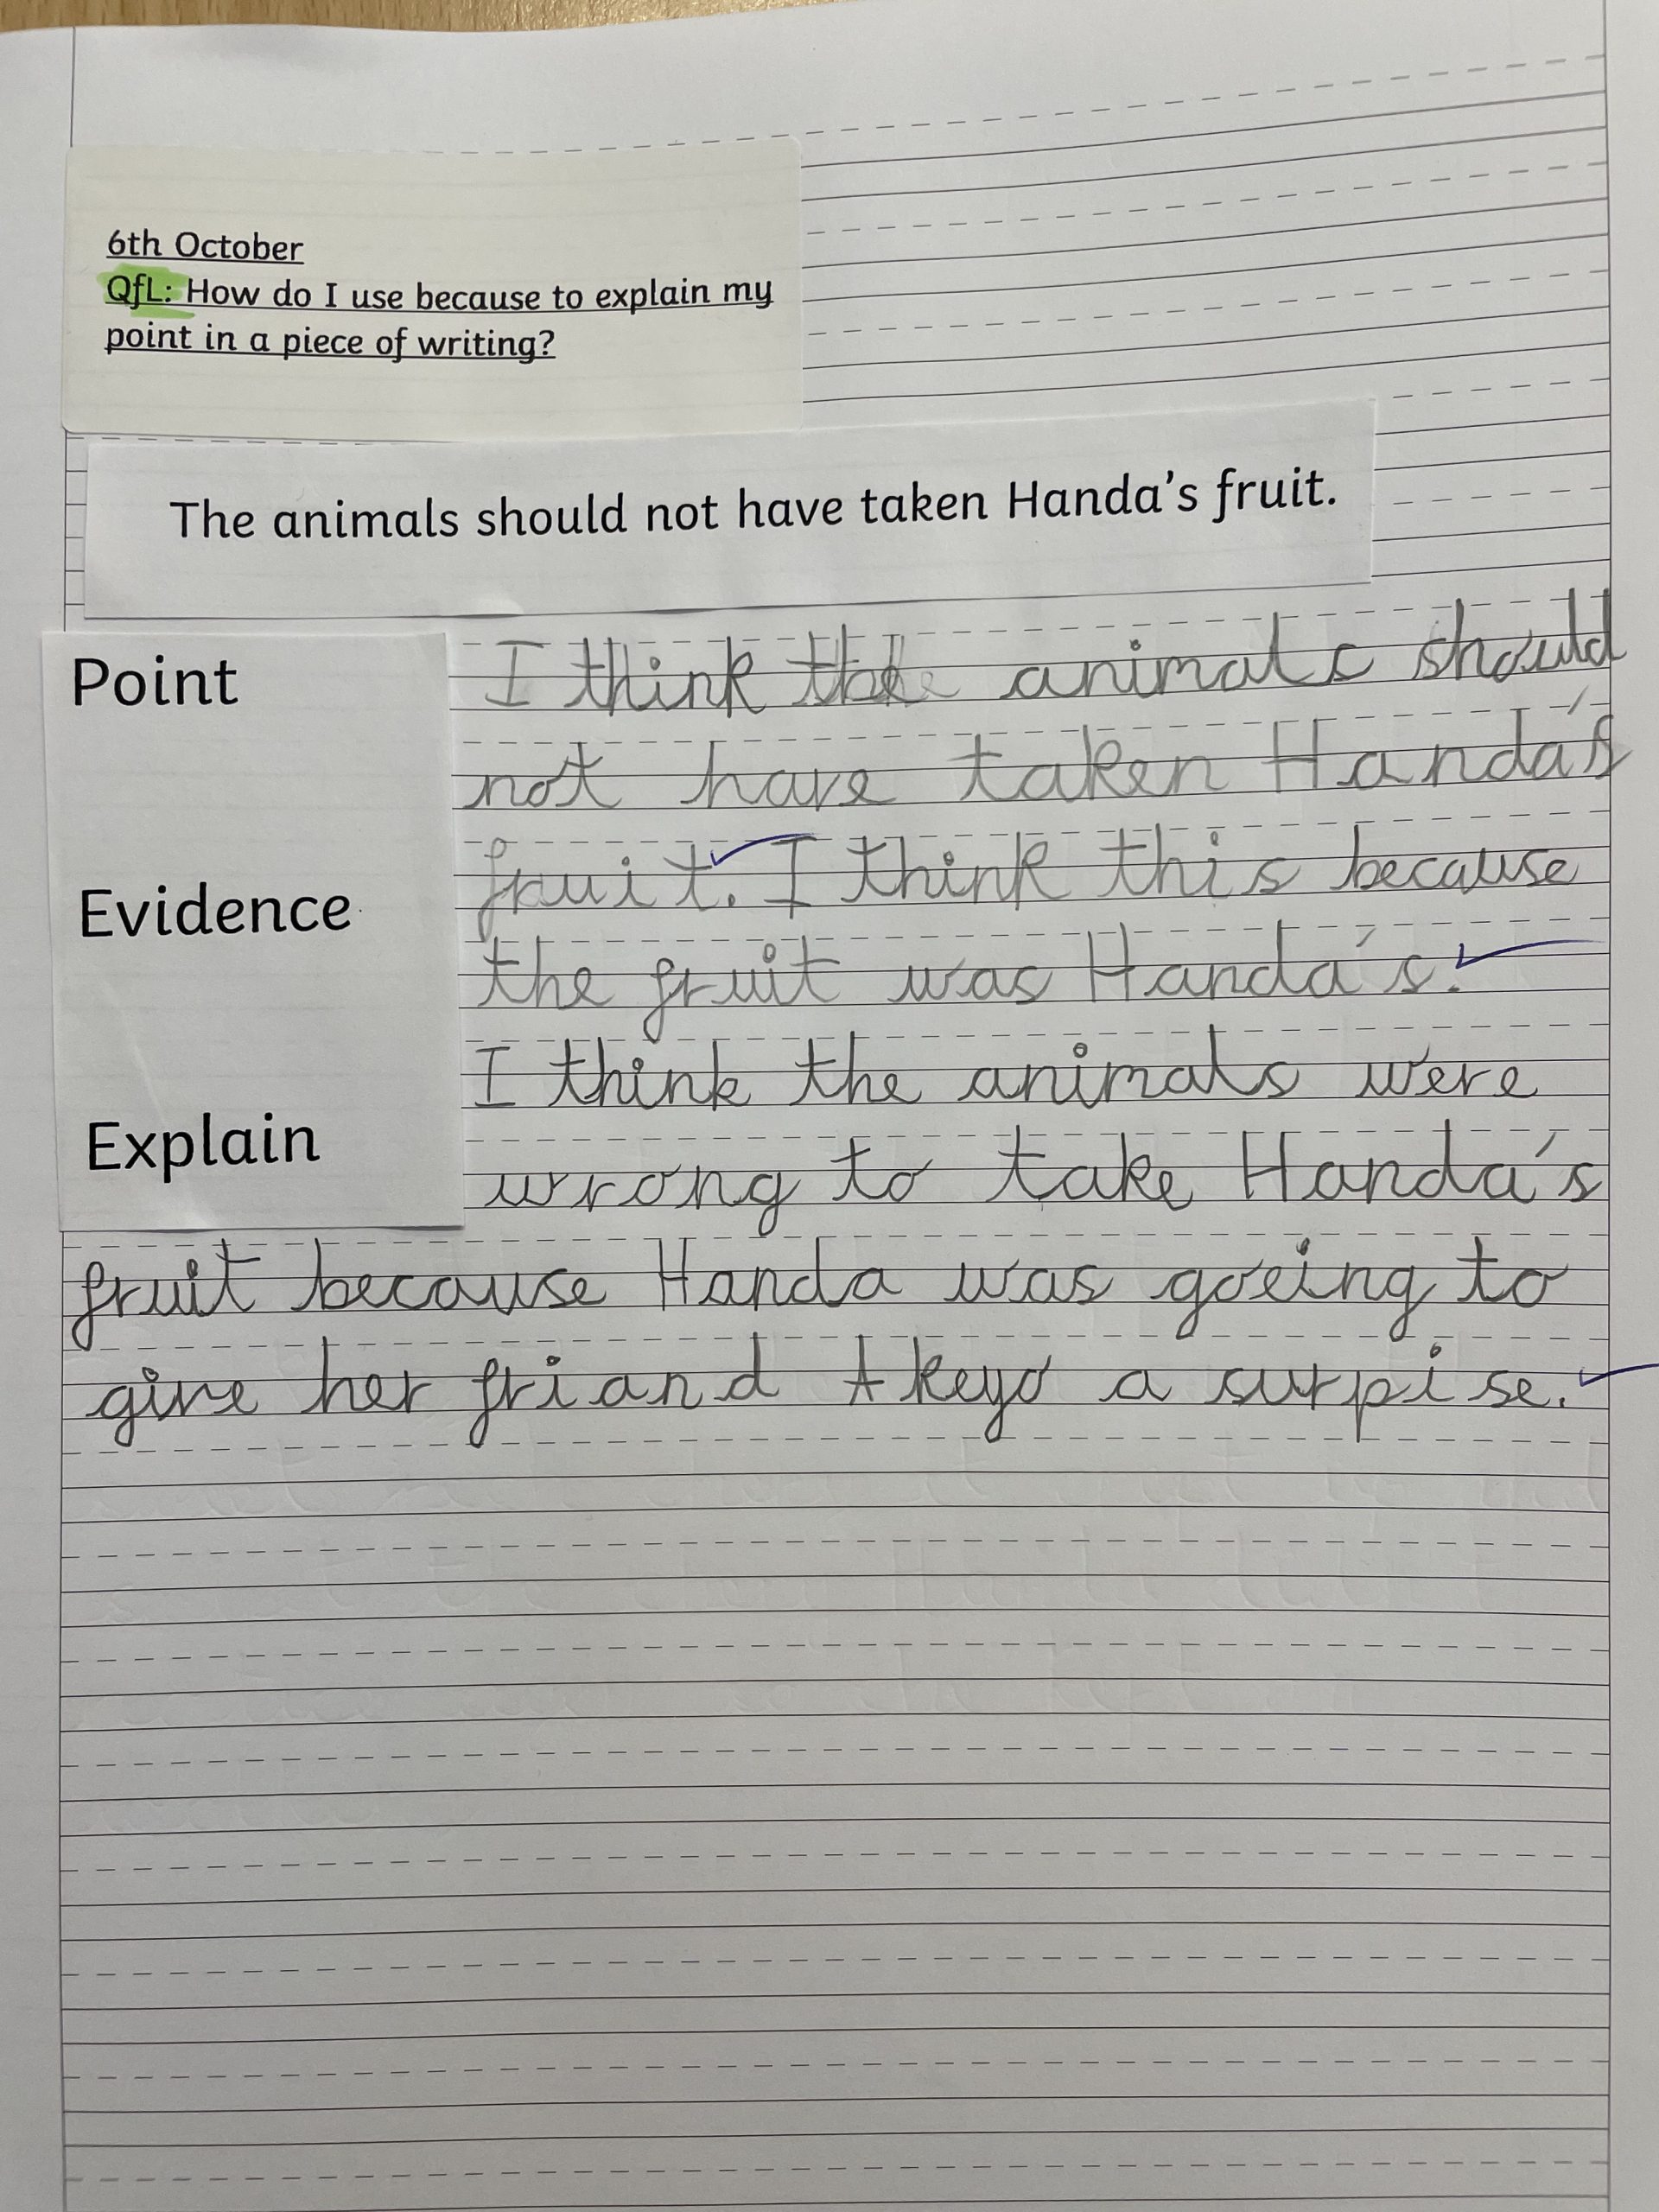 6th October
QfL: How do I use because to explain my
point in a piece of writing?
The animals should not have taken Handa's fruit.
Point
I think the animals should
not have taken Handa's
fruit. I think this because
Evidence
the fruit was Handa's.
I think the animals were
Explain
wrong to take Handa's
fruit because Handa was goeing to
give her friand Akeyo a surpise.